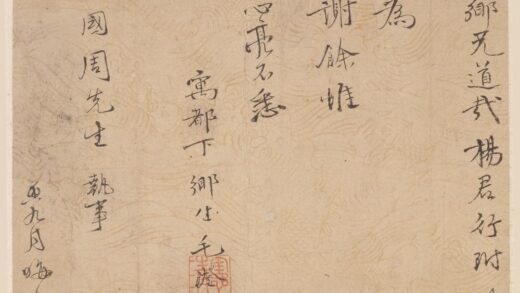 鄉兄道哉楊君行附
為
謝餘惟
心亮不悉
寓都下鄉生毛
國周先生 執事
九月晦